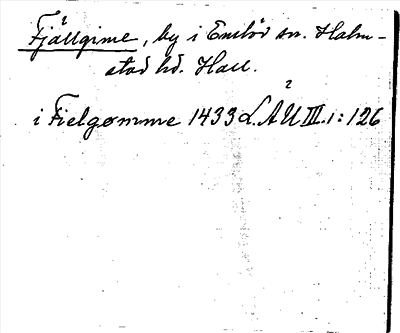 Fjällgime, by i Enslöv sn. Halm-
stad hd. Hall.
i Fielgømme 1433 L.ÅU III.1:126